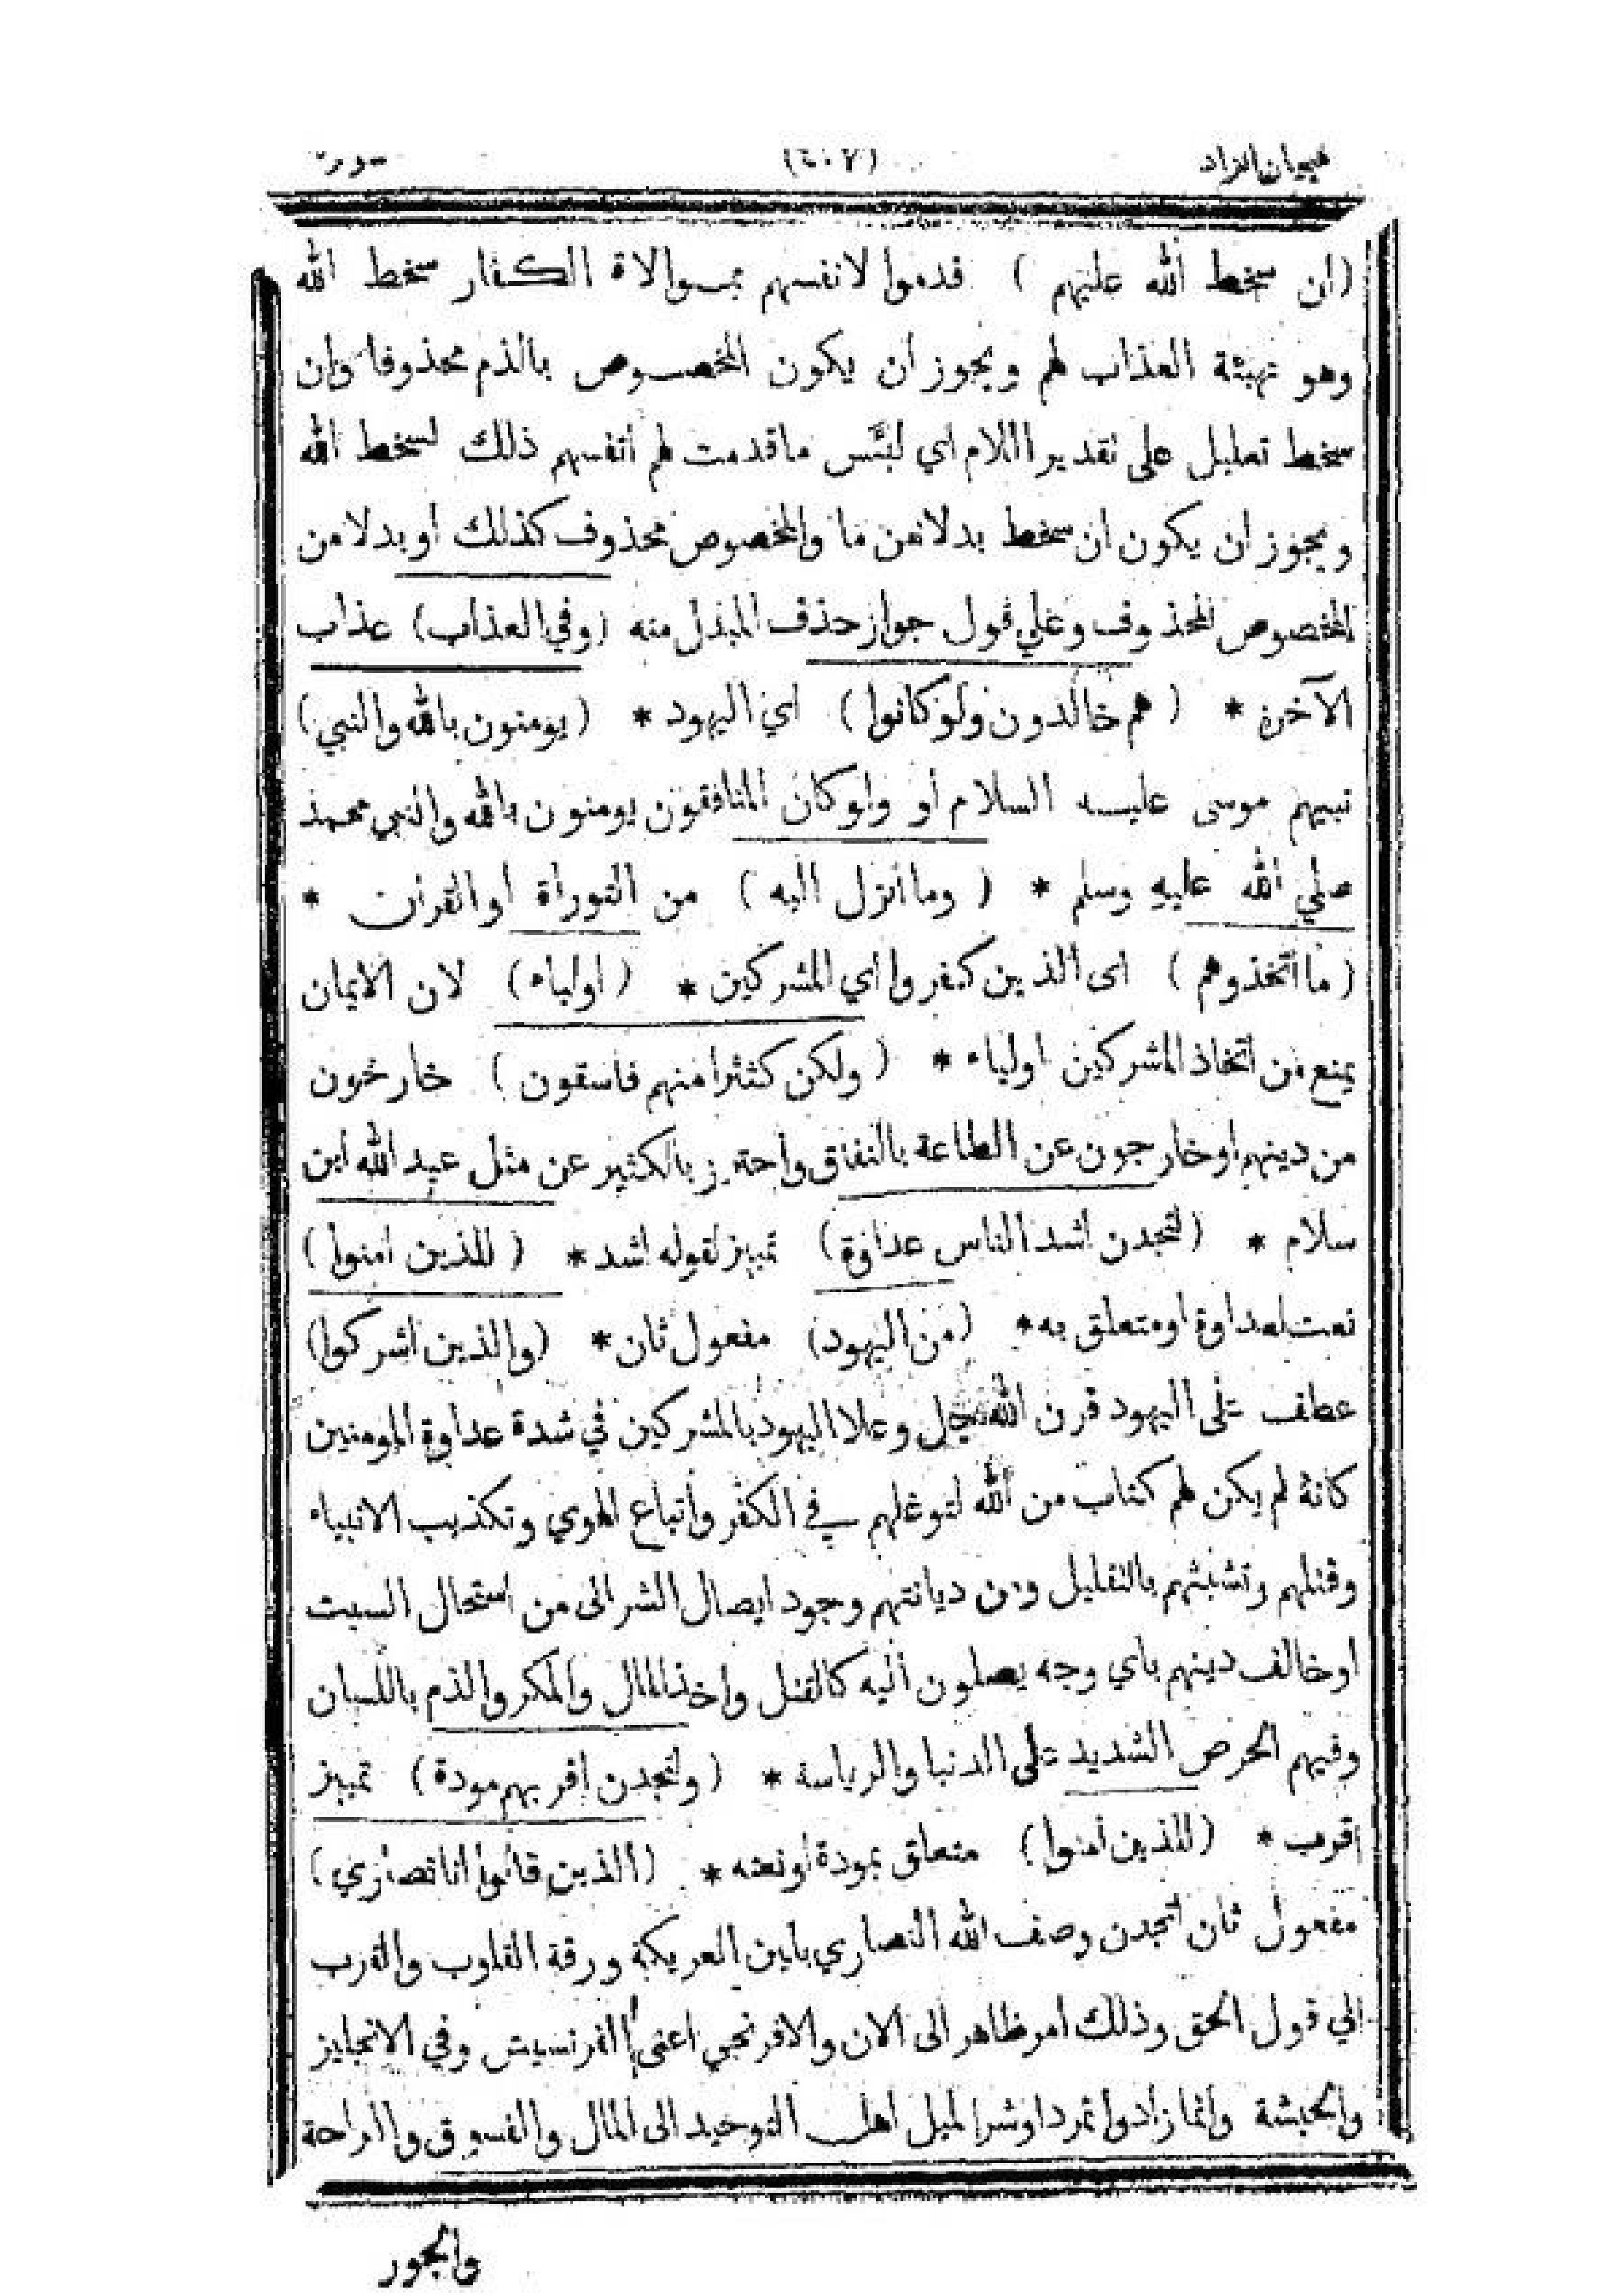 هميان الزاد (٤٠٢)
(ان سخط الله عليهم ) قدموا لانفسهم بموالاة الكفار سخط الله
وهو تهيئة العذاب لهم ويجوز أن يكون المخصوص بالذم محذوفا وان
سخط تعليل على تقدير اللام اي لبئس ماقدمت لهم أنفسهم ذلك لسخط الله
ويجوز ان يكون ان سخط بدلا من ما والمخصوص محذوف كذلك أو بدلا من
المخصوص المحذوف وعلي قول جواز حذف المبدل منه (وفي العذاب) عذاب
الآخرة * ( هم خالدون ولو كانوا ) اي اليهود * ( يومنون بالله والنبي )
نبيهم موسى عليه السلام أو ولو كان المنافقون يومنون بالله والنبي محمد
صلي الله عليه وسلم * ( وما أنزل اليه ) من التوراة او القرآن *
( ما اتخذوهم ) اى الذين كفروا اي المشركين * ( اولياء ) لان الايمان
يمنع من اتخاذ المشركين اولياء * ( ولكن كثيرا منهم فاسقون ) خارجون
من دينهم او خارجون عن الطاعة بالنفاق واحترز بالكثير عن مثل عبد الله ابن
سلام * ( لتجدن أشد الناس عداوة ) تمييز لقوله اشد * ( للذين امنوا )
نعت لعداوة او متعلق به * (من اليهود) مفعول ثان * (والذين أشركوا)
عطف على اليهود قرن الله جل وعلا اليهود بالمشركين في شدة عداوة المومنين
كانه لم يكن لهم كتاب من الله لتوغلهم في الكفر واتباع الهوي وتكذيب الانبياء
وقتلهم وتشبثهم بالتقليل ومن ديانتهم وجود ايصال الشر الى من استحال السبت
او خالف دينهم باي وجه يصلون اليه كالقتل واخذ المال والمكر والذم باللسان
وفيهم الحرص الشديد على الدنيا والرياسة * ( ولتجدن اقربهم مودة ) تمييز
اقرب * ( للذين امنوا ) متعلق بمودة او نعته * ( الذين قالوا انا نصاري )
مفعول ثان لتجدن وصف الله النصاري بلين العريكة ورقة القلوب والقرب
الي قول الحق وذلك امر ظاهر الى الان والافرنجي اعنى الفرنسيس وفي الانجليز
والحبشة وانما زادوا تمردا وشرا لميل اهل التوحيد الى المال والفسوق والراحة
والجور